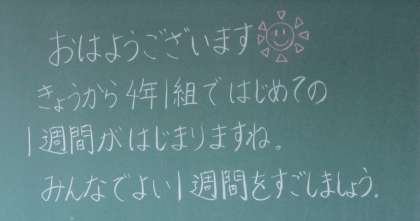 おはようございます
きょうから4年1組ではじめての
1週間がはじまりますね。
みんなでよい1週間をすごしましょう.